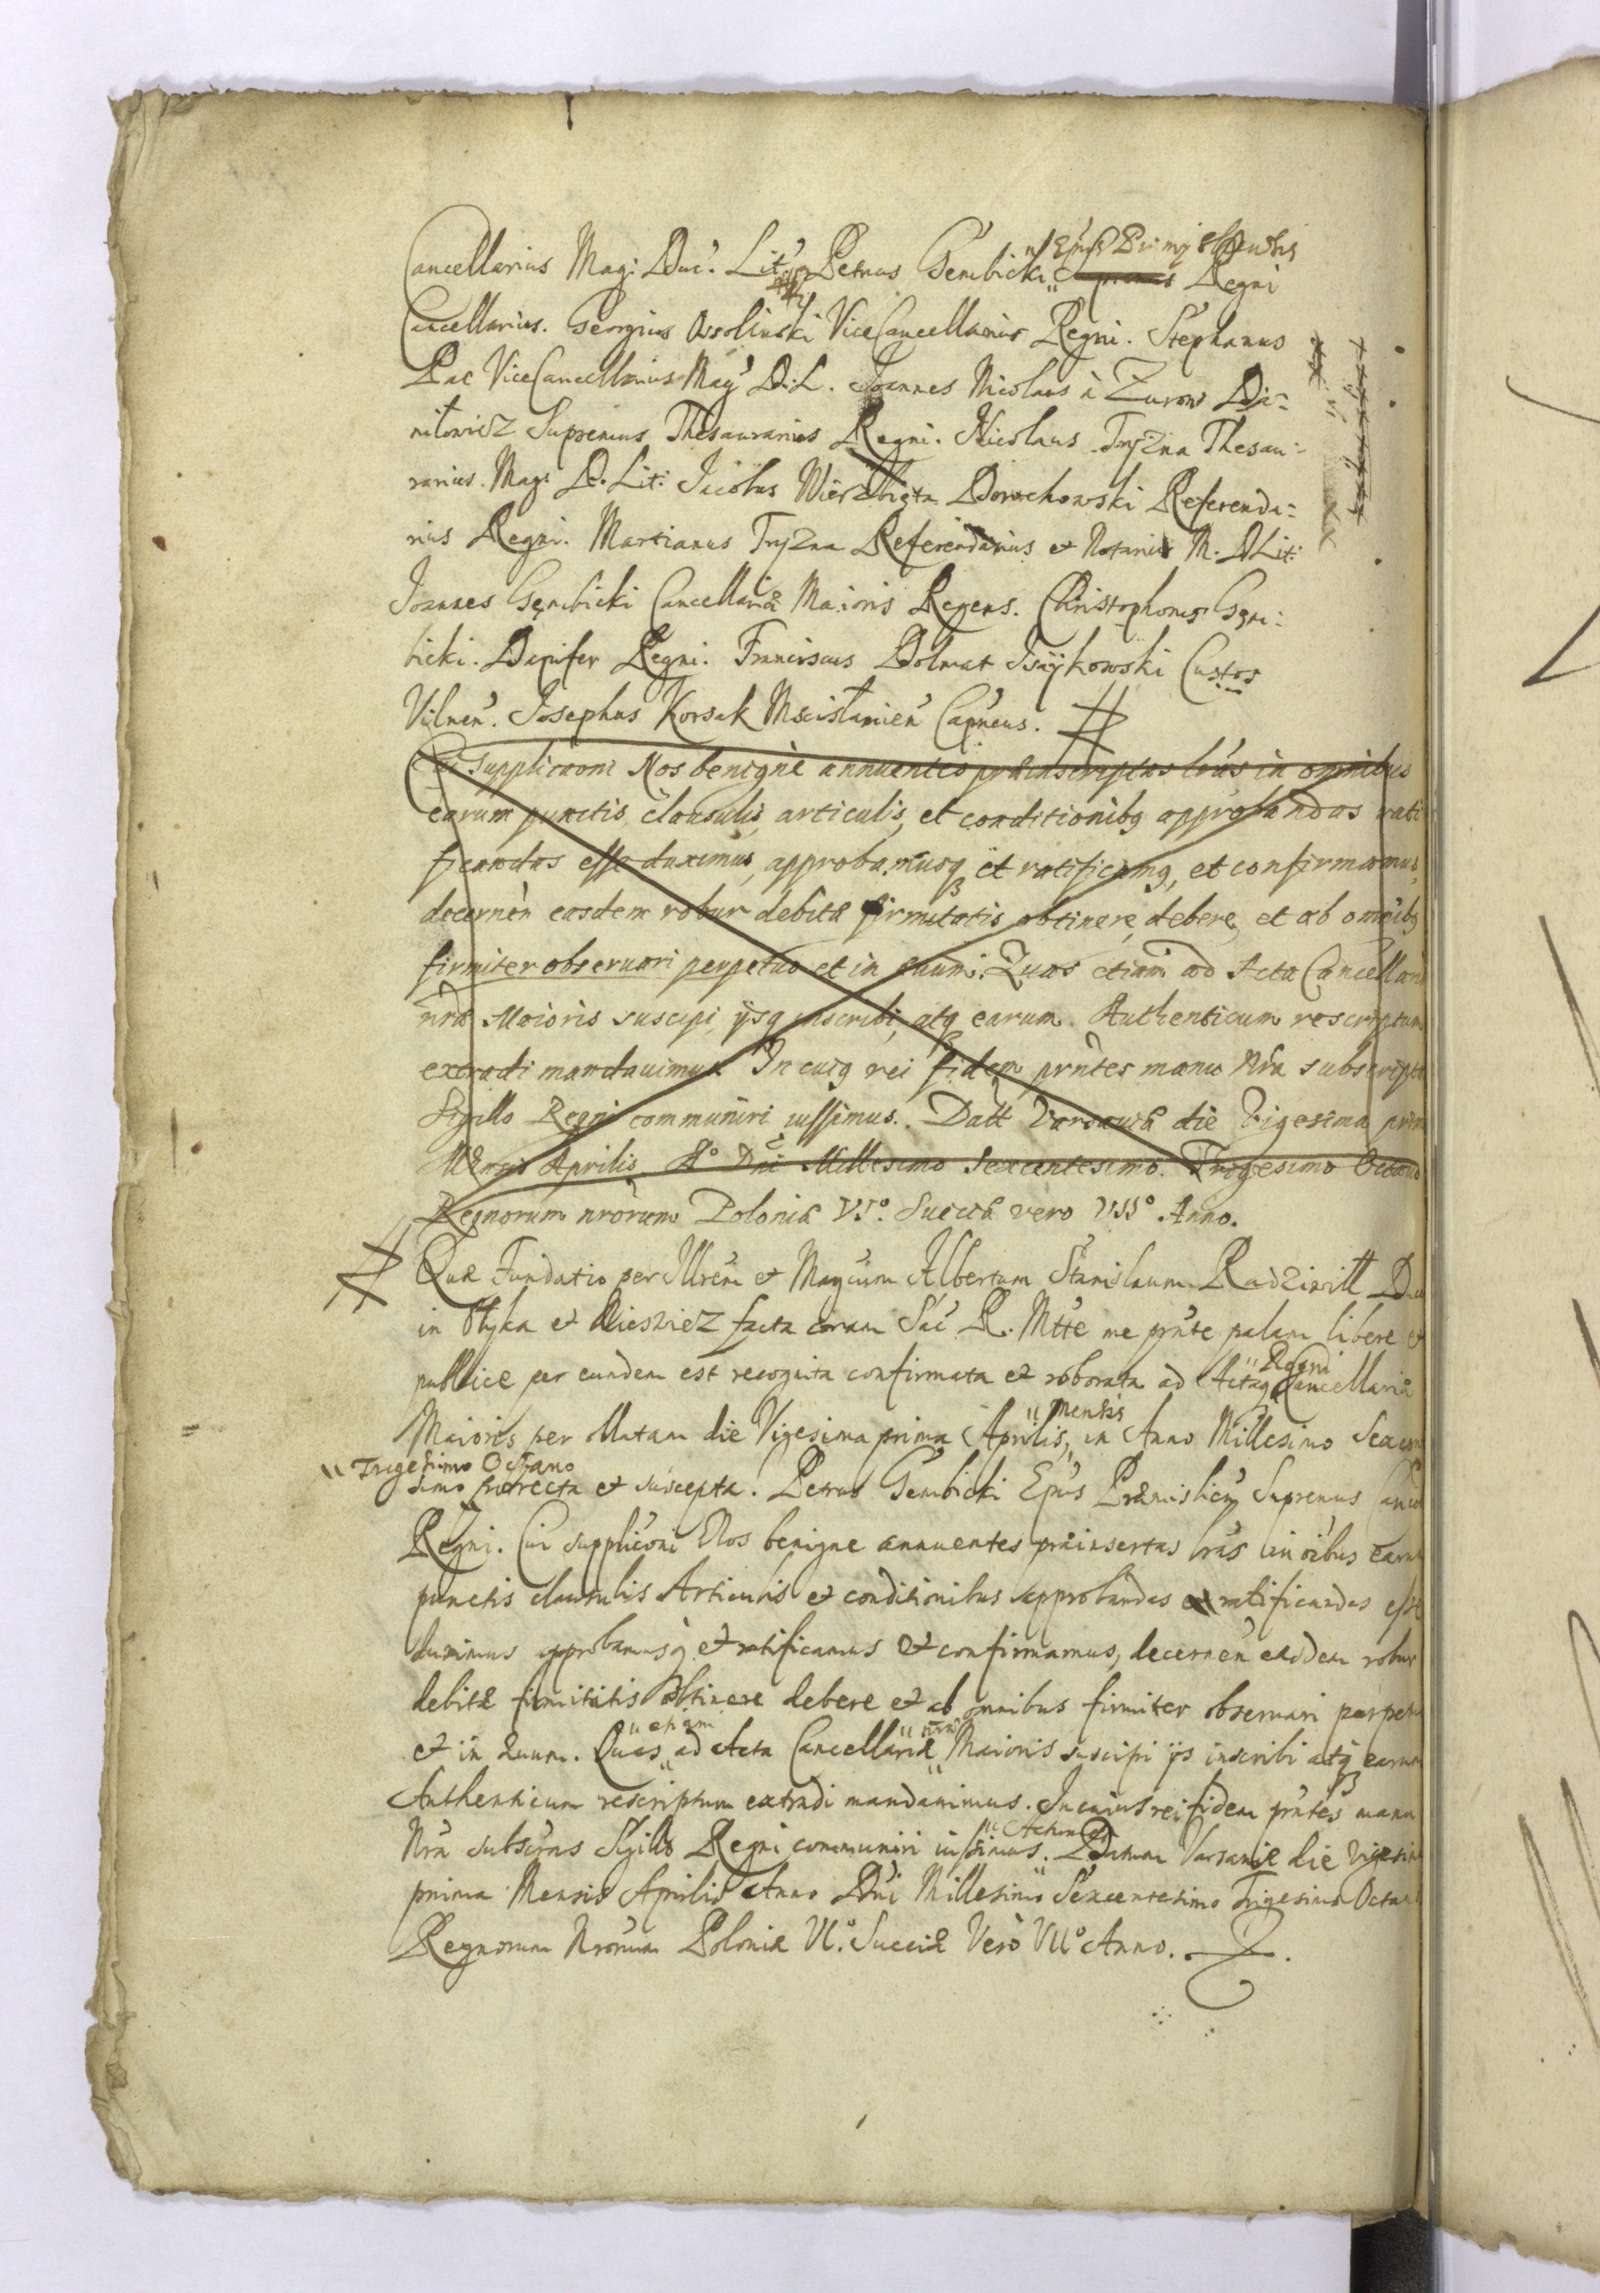 "Epus Præmysliensis
Cancellarius Mag: Duc: Lit: Petrus Gembicki Regni
Cancellarius. Georgius Ossolinski ViceCancellarius Regni. Stephanus
Pac ViceCancellarius Mag D: L. Joannes Nicolaus à Zurow Da=
niłowicz Supremus Thesaurarius Regni. Nicolaus Tryzna Thesau=
rarius Mag: D. Lit: Jacobus Wierzbięta Dorochowski Referenda=
rius Regni. Martianus Tryzna Referendarius et Notarius M. D Lit:
Joannes Gembicki Cancellariæ Maioris Regens. Christophorus Gem=
bicki Dapifer Regni. Franciscus Dolmat Isaÿkowski Custos
Vilnen. Josephus Korsak Mscisłauien Capneus. #
Cui supplicaoni Nos benignè annuentes præinscriptas lras in omnibus
earum punctis, clausulis, articulis, et conditionibq approbandas rati
ficandas esse duximus, approbamusq et ratificamq, et confirmamus,
decernen easdem robur debitæ firmitatis obtinere debere, et ab omnibq
firmiter obseruari perpetuo et in æuum. Quas etiam ad Acta Cancellari
nræ Maioris suscipi, ijsq inscribi, atq earum Authenticum rescriptum
extradi mandauimus. In cuiq rei fidem prntes manu Nra subscript
Sigillo Regni communiri iussimus. Datt Varsauiæ die Vigesima prim
Mensis Aprilis Ao Dni Millesimo Sexcentesimo Trigesimo Octauo
Regnorum nrorum Poloniæ VIo. Sueciæ vero VIIo Anno.
# Quæ Fundatio per Illrem et Magcum Albertum Stanislaum Radziwiłł Du
in Ołyka et Nieswiez facta coram Sac R. Mtte me prnte palam libere et
publice per eundem est recognita confirmata et roborata ad Actaq "Regni Cancellariæ
Maioris per oblatam die Vigesima prima Aprilis, "mensis in Anno Millesimo Sexcen
"Trigesimo Octauo
simo porrecta et suscepta. Petrus Gembicki Epus Præmislien Supremus Canc
Regni. Cui supplicaoni Nos benigne annuentes præinsertas lras in oibus earum
punctis clausulis Articulis et conditionibus approbandas et ratificandas esse
duximus approbamusq et ratificamus et confirmamus, decernen easdem robur
debitæ firmitatis obtinere debere et ab omnibus firmiter obseruari perpetu
et in æuum. Quas "etiam ad Acta Cancellariæ "nræ Maioris suscipi ijs inscribi atq earum
Authenticum rescriptum extradi mandauimus. In cuius rei fidem prntes manu
Nra subscras Sigillo Regni communiri iussimus. Datum Varsauiæ die Vigesim
prima Mensis Aprilis Anno Dni Millesimo Sexcentesimo Trigesimo Octau
Regnorum Nrorum Poloniæ VIo. Sueciæ Verò VIIo Anno.